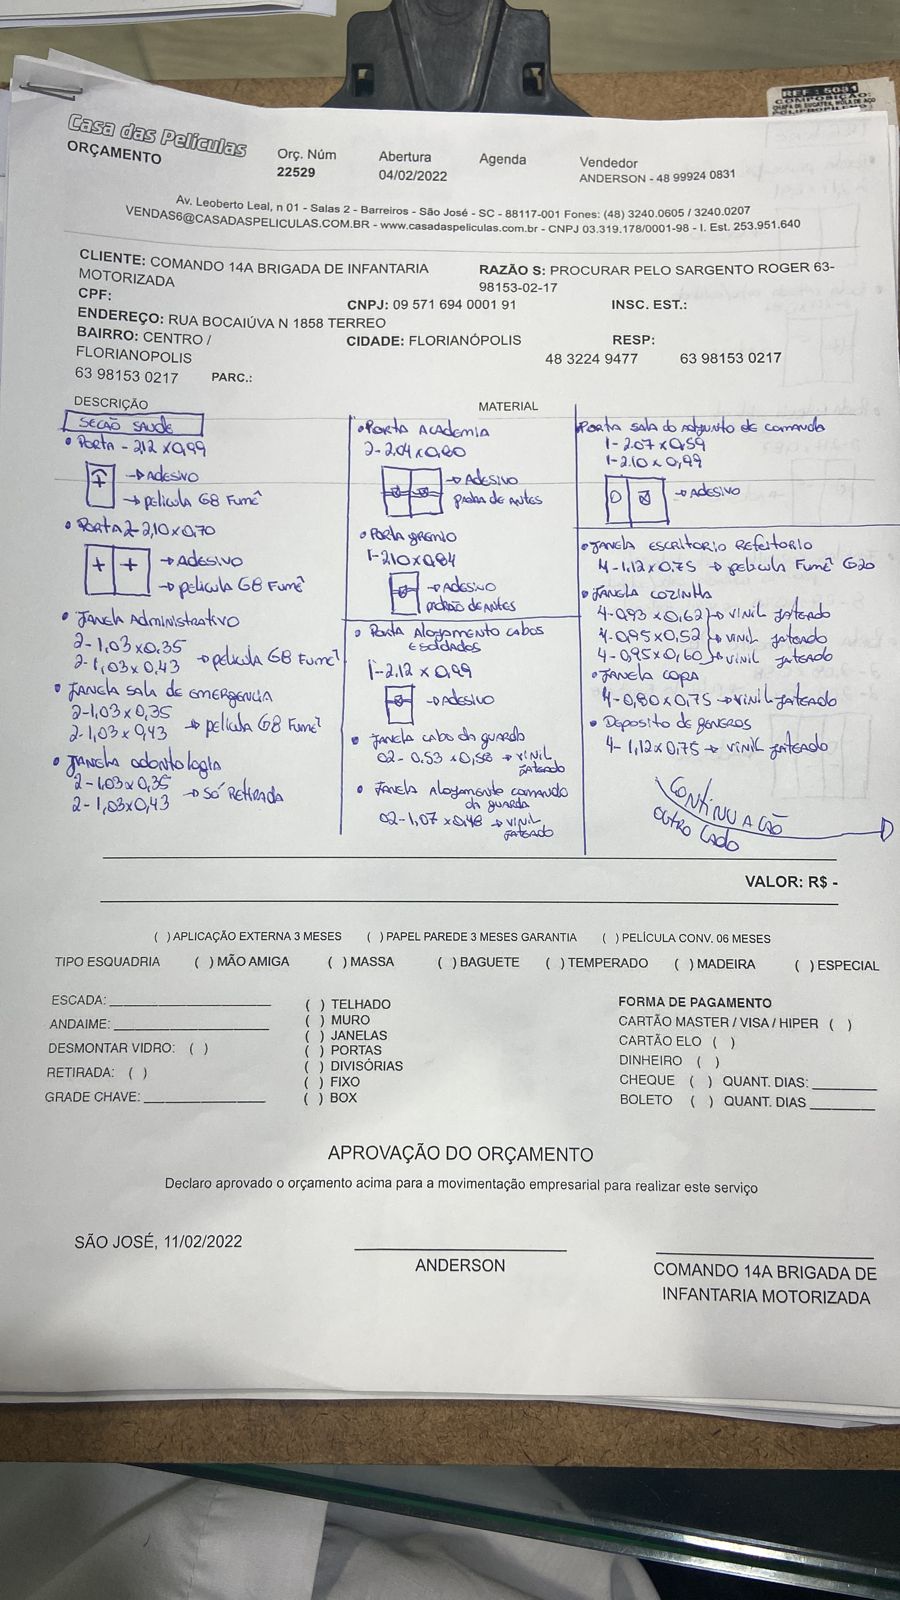 REF : 5081
COMPOSIÇÃO:
CHAPA DE EUCATEX, MOLA DE AÇO
POLIPROPILENO
Casa das Películas
ORÇAMENTO
Orç. Núm
22529
Abertura
04/02/2022
Agenda
Vendedor
ANDERSON - 48 99924 0831
Av. Leoberto Leal, n 01 - Salas 2 - Barreiros - São José - SC - 88117-001 Fones: (48) 3240.0605 / 3240.0207
VENDAS6@CASADASPELICULAS.COM.BR - www.casadaspeliculas.com.br - CNPJ 03.319.178/0001-98 - I. Est. 253.951.640
CLIENTE: COMANDO 14A BRIGADA DE INFANTARIA
MOTORIZADA
RAZÃO S: PROCURAR PELO SARGENTO ROGER 63-
98153-02-17
CPF:
CNPJ: 09 571 694 0001 91
INSC. EST.:
ENDEREÇO: RUA BOCAIÚVA N 1858 TERREO
BAIRRO: CENTRO /
FLORIANOPOLIS
CIDADE: FLORIANÓPOLIS
RESP:
48 3224 9477
63 98153 0217
63 98153 0217
PARC.:
DESCRIÇÃO
MATERIAL
SECÃO SAUDE
• PORTA - 2,12 x 0,99
→ ADESIVO
→ película G8 Fumê
• PORTA 2 - 2,10 x 0,70
→ ADESIVO
→ película G8 Fumê
• JANELA Administrativo
2 - 1,03 x 0,35
2 - 1,03 x 0,43 → película G8 Fumê
• JANELA SALA DE EMERGENCIA
2 - 1,03 x 0,35
2 - 1,03 x 0,43 → película G8 Fumê
• JANELA odontologia
2 - 1,03 x 0,35
2 - 1,03 x 0,43 → SÓ RETIRADA
• PORTA ACADEMIA
2 - 2.04 x 0.80
→ ADESIVO
DE ANTES
• PORTA GREMIO
1 - 2.10 x 0,84
→ ADESIVO
PADRÃO DE ANTES
• PORTA Alojamento cabos
E SOLDADOS
1 - 2.12 x 0,99
→ ADESIVO
• JANELA cabo da guarda
02 - 0.53 x 0,58 → VINIL
JATEADO
• JANELA Alojamento comando
da guarda
02 - 1,07 x 0,48 → VINIL
JATEADO
PORTA sala do Adjunto de comando
1 - 2.07 x 0,59
1 - 2.10 x 0,99
→ ADESIVO
• JANELA ESCRITORIO REFEITORIO
4 - 1.12 x 0.75 → película Fumê G20
• JANELA COZINHA
4 - 0,93 x 0,62 → VINIL JATEADO
4 - 0,95 x 0,52 → VINIL JATEADO
4 - 0,95 x 0,60 → VINIL JATEADO
• JANELA COPA
4 - 0,80 x 0,75 → VINIL JATEADO
• Deposito de generos
4 - 1,12 x 0,75 → VINIL JATEADO
CONTINUAÇÃO
OUTRO LADO
VALOR: R$ -
( ) APLICAÇÃO EXTERNA 3 MESES ( ) PAPEL PAREDE 3 MESES GARANTIA ( ) PELÍCULA CONV. 06 MESES
TIPO ESQUADRIA ( ) MÃO AMIGA ( ) MASSA ( ) BAGUETE ( ) TEMPERADO ( ) MADEIRA ( ) ESPECIAL
ESCADA:
ANDAIME:
DESMONTAR VIDRO: ( )
RETIRADA: ( )
GRADE CHAVE:
( ) TELHADO
( ) MURO
( ) JANELAS
( ) PORTAS
( ) DIVISÓRIAS
( ) FIXO
( ) BOX
FORMA DE PAGAMENTO
CARTÃO MASTER / VISA / HIPER ( )
CARTÃO ELO ( )
DINHEIRO ( )
CHEQUE ( ) QUANT. DIAS:
BOLETO ( ) QUANT. DIAS
APROVAÇÃO DO ORÇAMENTO
Declaro aprovado o orçamento acima para a movimentação empresarial para realizar este serviço
SÃO JOSÉ, 11/02/2022
ANDERSON
COMANDO 14A BRIGADA DE
INFANTARIA MOTORIZADA